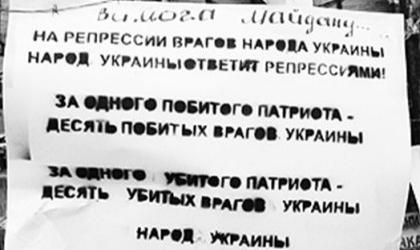 Вимога Майдану...
НА РЕПРЕССИИ ВРАГОВ НАРОДА УКРАИНЫ
НАРОД УКРАИНЫ ОТВЕТИТ РЕПРЕССИЯМИ!
ЗА ОДНОГО ПОБИТОГО ПАТРИОТА -
ДЕСЯТЬ ПОБИТЫХ ВРАГОВ УКРАИНЫ
ЗА ОДНОГО УБИТОГО ПАТРИОТА -
ДЕСЯТЬ УБИТЫХ ВРАГОВ УКРАИНЫ
НАРОД УКРАИНЫ